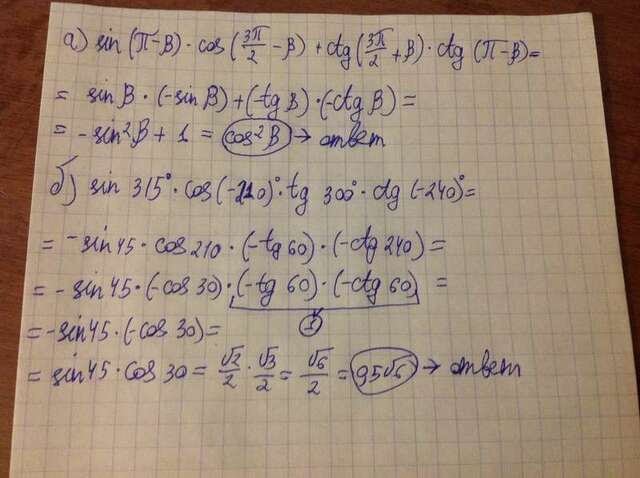 а) sin (π-β) · cos (3π/2 - β) + ctg (3π/2 + β) · ctg (π-β) =
= sin β · (-sin β) + (-tg β) · (-ctg β) =
= -sin²β + 1 = cos²β → ответ
б) sin 315° · cos (-210)° · tg 300° · ctg (-240)° =
= -sin 45 · cos 210 · (-tg 60) · (-ctg 240) =
= -sin 45 · (-cos 30) · (-tg 60) · (-ctg 60) =
= -sin 45 · (-cos 30) =
1
= sin 45 · cos 30 = √2/2 · √3/2 = √6/2 = 0,5√6 → ответ